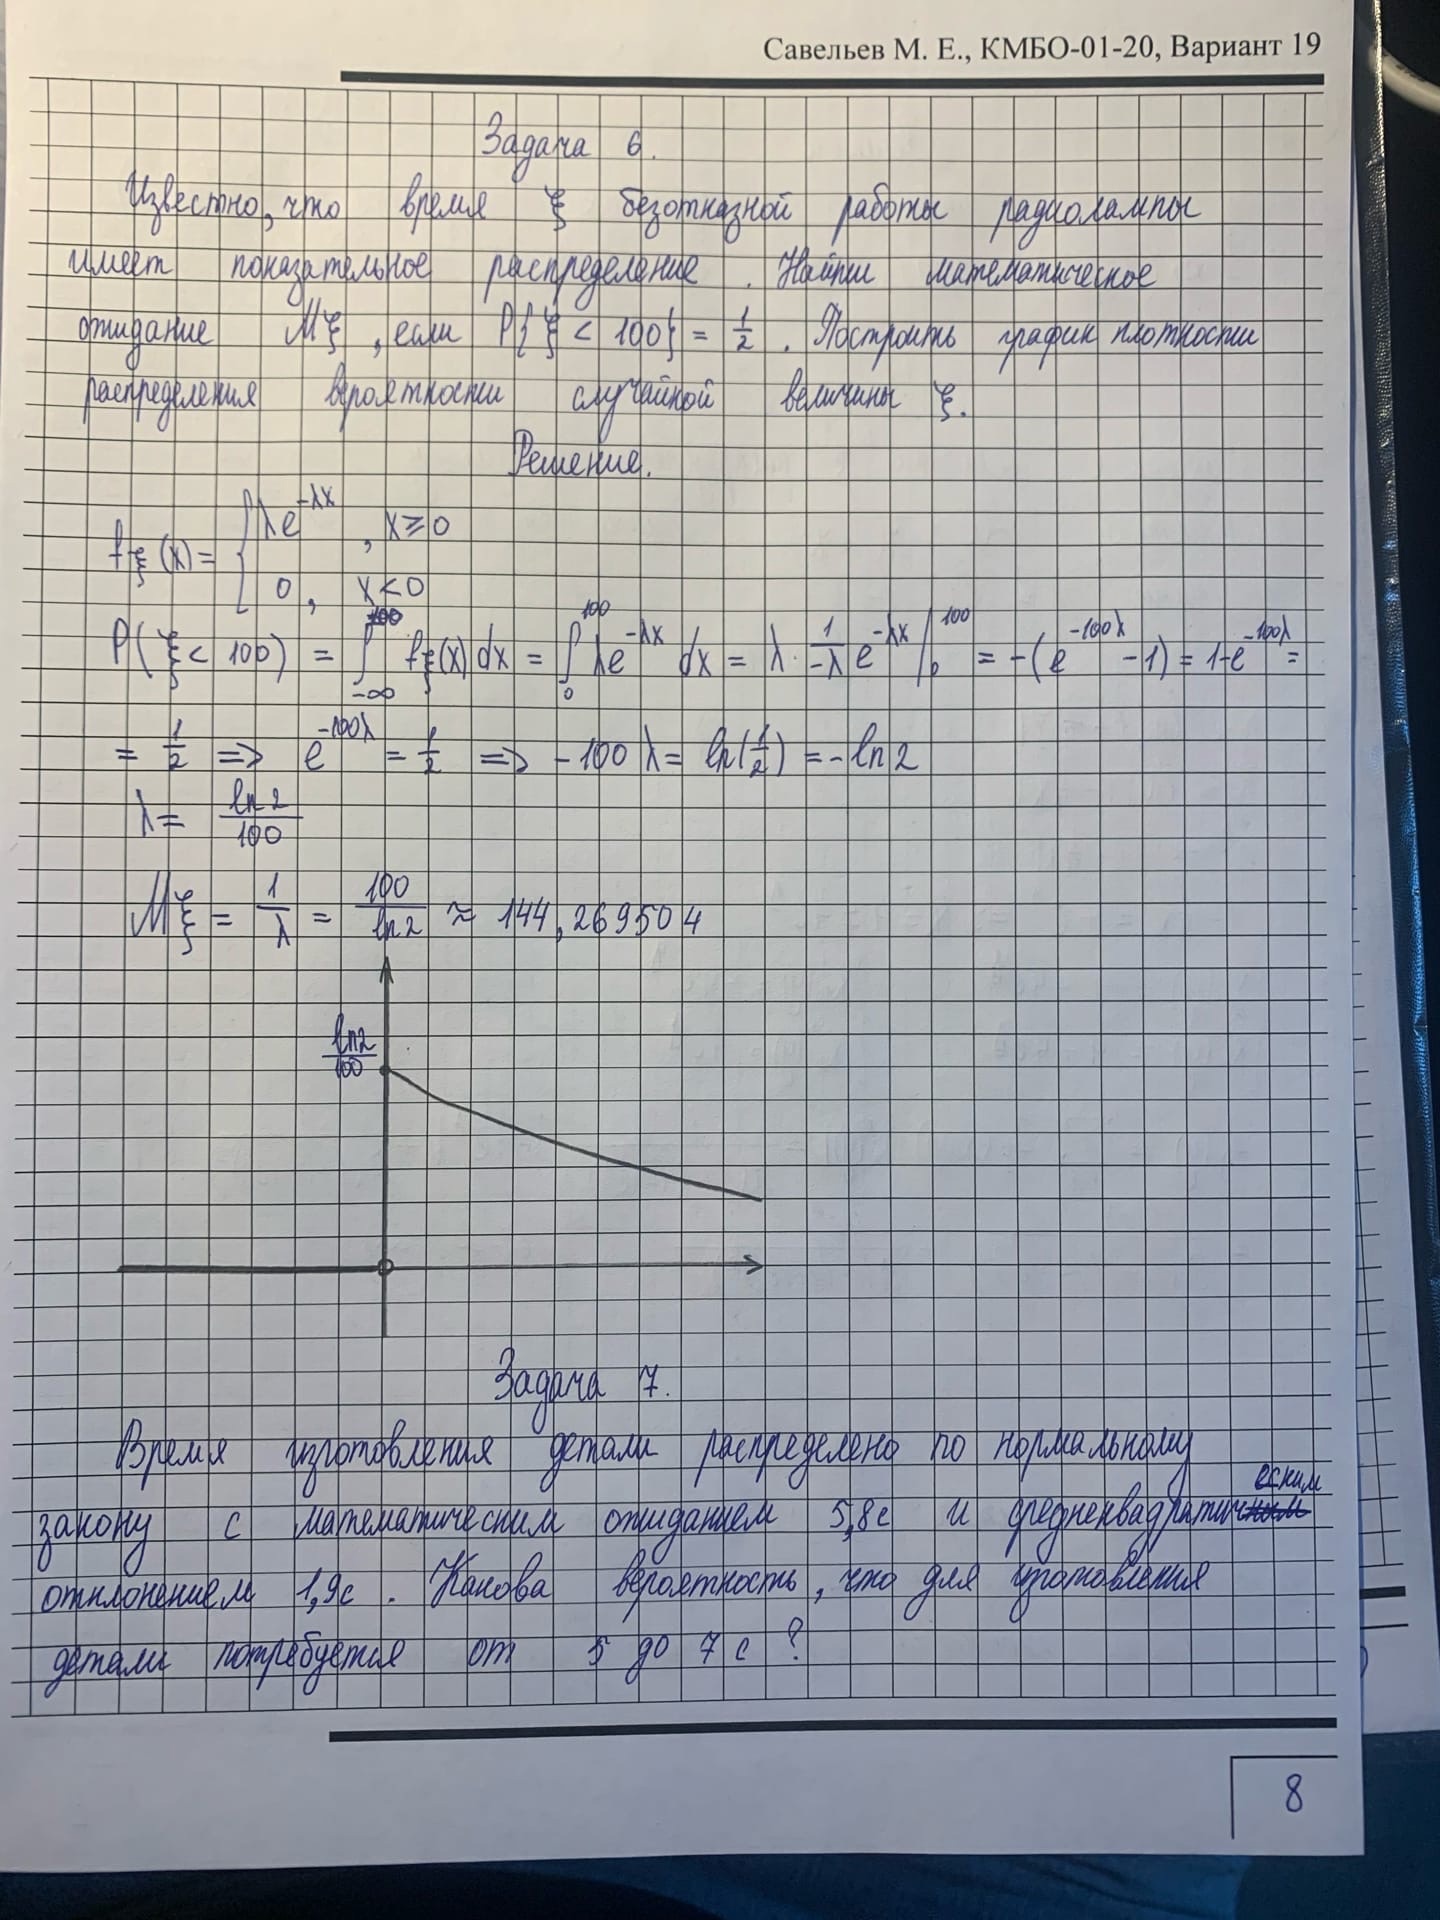 Савельев М. Е., КМБО-01-20, Вариант 19
Задача 6.
Известно, что время ξ безотказной работы радиолампы
имеет показательное распределение. Найти математическое
ожидание Mξ, если P{ξ < 100} = 1/2. Построить график плотности
распределения вероятности случайной величины ξ.
Решение.
fξ(x) = { λe^(-λx), x ≥ 0
0, x < 0
P(ξ < 100) = ∫_{-∞}^{100} fξ(x) dx = ∫_0^{100} λe^(-λx) dx = λ · 1/(-λ) e^(-λx) |_0^{100} = -(e^(-100λ) - 1) = 1-e^(-100λ) =
= 1/2 => e^(-100λ) = 1/2 => -100λ = ln(1/2) = -ln2
λ = ln2/100
Mξ = 1/λ = 100/ln2 ≈ 144,269504
ln2/100
Задача 7.
Время изготовления детали распределено по нормальному
закону с математическим ожиданием 5,8с и среднеквадратическим
отклонением 1,9с. Какова вероятность, что для изготовления
детали потребуется от 5 до 7 с?
8